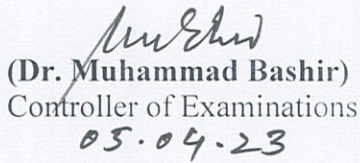 (Dr. Muhammad Bashir)
Controller of Examinations
05.04.23